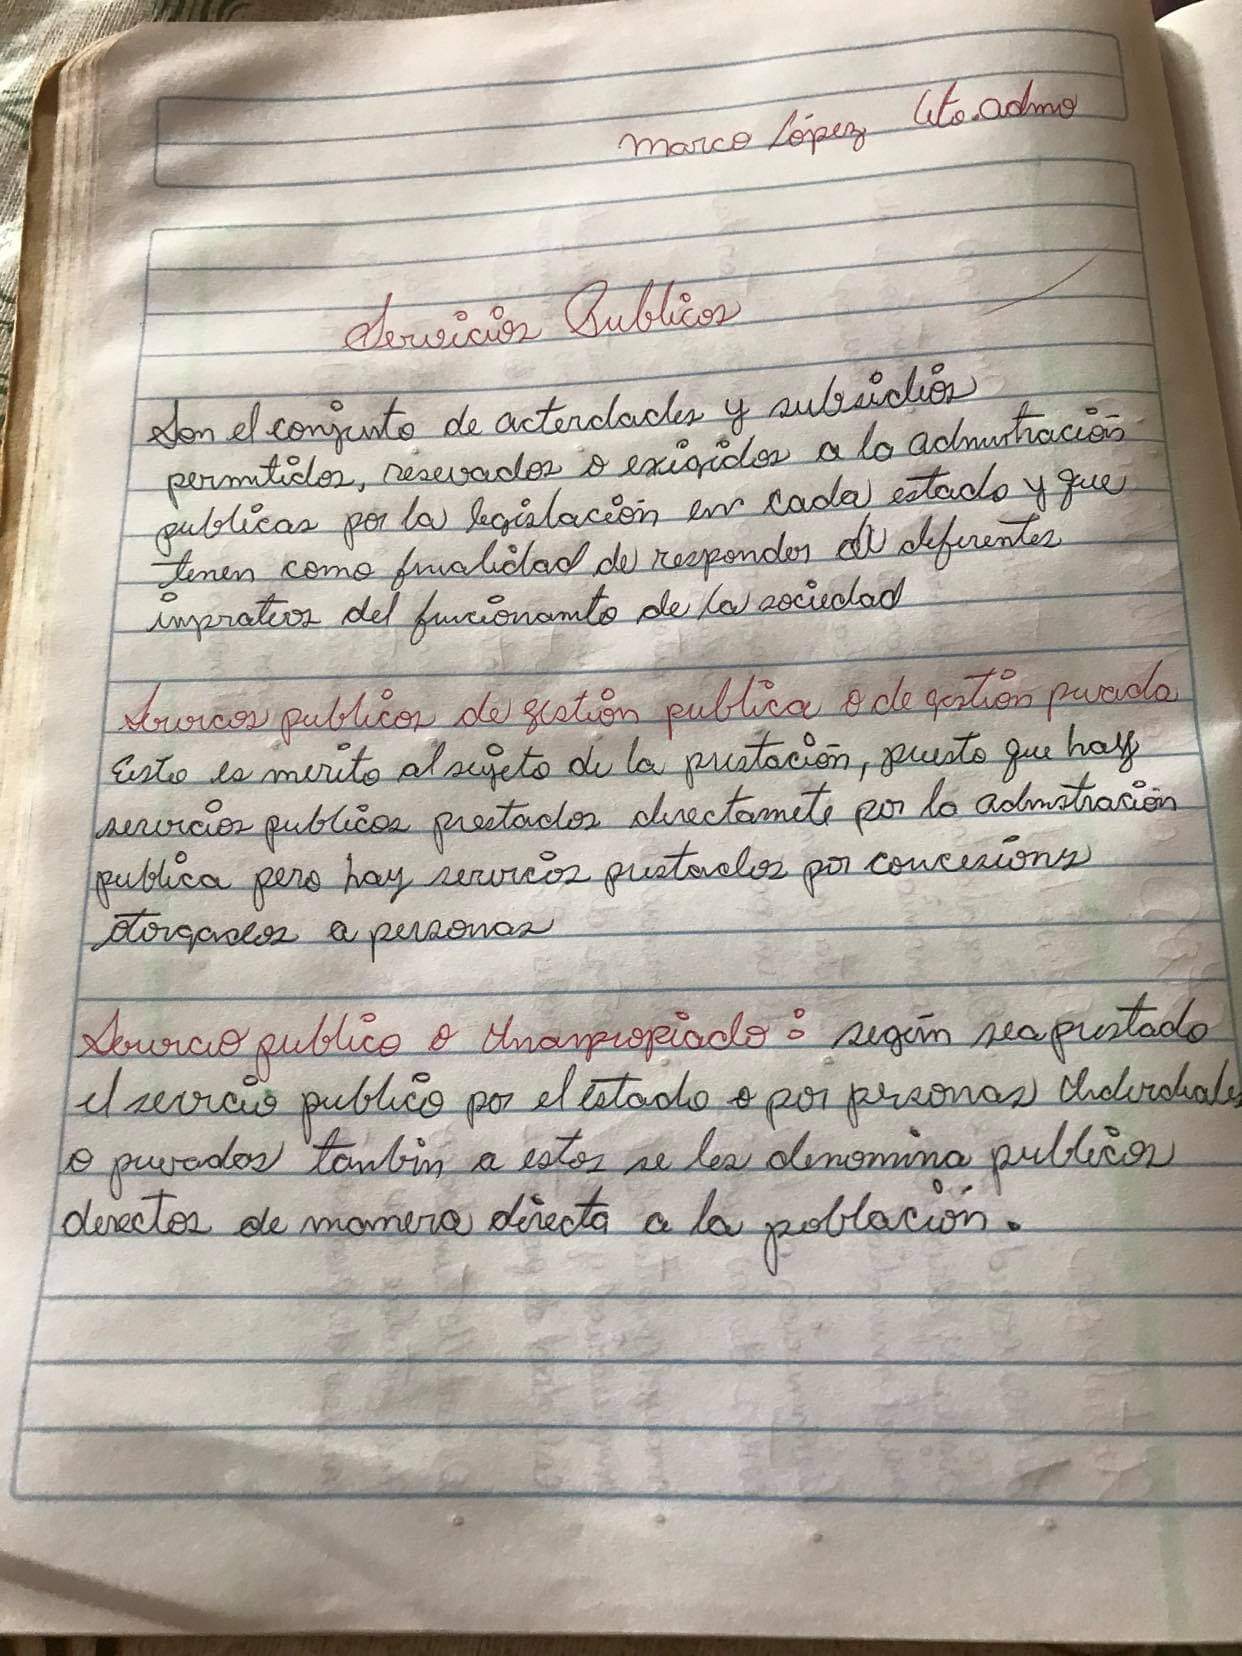 Marco López 4to. admo
Servicios Publicos
Son el conjunto de acterdades y subsidios
permitidos, resevados o exigidos a la admnistración
publicas por la legislación en cada estado y que
tenen como finalidad de responder a diferentes
imprativos del funcionamto de la sociedad
Servicos publicos de gestión publica o de gestión privada
Esto es merito al sujeto de la prestación, puesto que hay
servicios publicos prestados directamete por la admistración
publica pero hay servicos prestados por concesiones
otorgados a personas
Servicio publico o Inanpropiado: según sea prestado
el servicio publico por el estado o por personas individuales
o privados tanbin a estos se les denomina publicos
derectos de manera directa a la población.